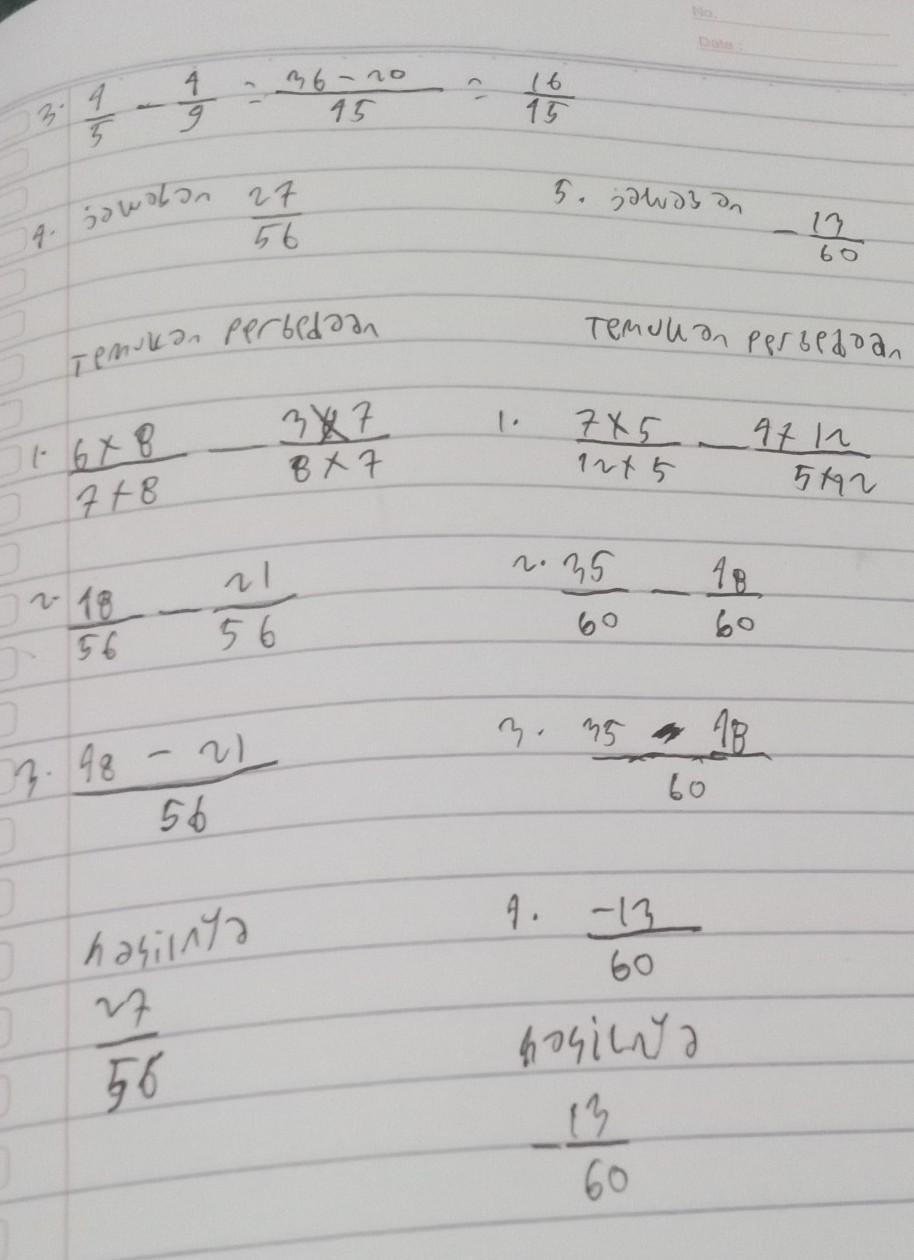 No.
Date :
3. 4/5 - 4/9 = 36 - 20/45 = 16/45
4. jawaban 27/56
Temukan perbedaan
1. 6 x 8/7 x 8 - 3 x 7/8 x 7
2. 48/56 - 21/56
3. 48 - 21/56
hasilnya
27/56
5. jawaban -13/60
Temukan perbedaan
1. 7 x 5/12 x 5 - 4 x 12/5 x 12
2. 35/60 - 48/60
3. 35 - 48/60
4. -13/60
hasilnya
-13/60